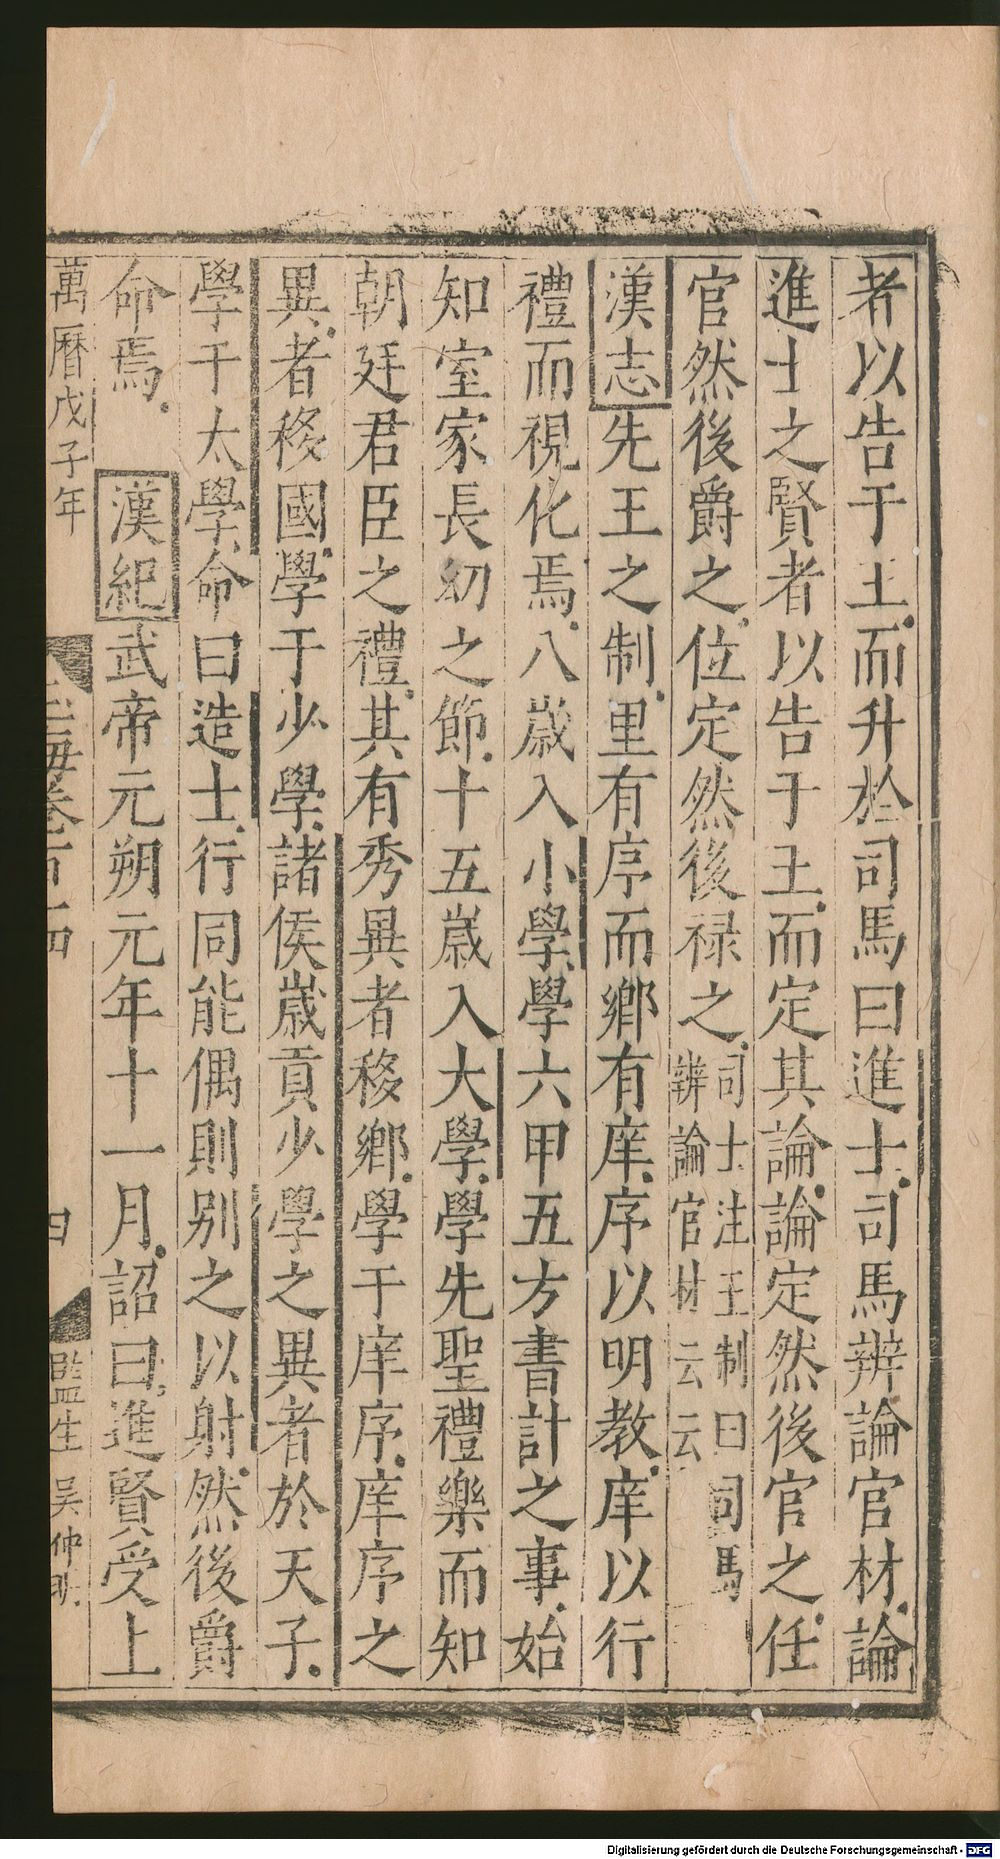 者以告于王而升於司馬曰進士司馬辨論官材論
進士之賢者以告于王而定其論論定然後官之任
官然後爵之位定然後祿之司士注王制曰司馬辨論官材云云
漢志先王之制里有序而鄉有庠序以明教庠以行
禮而視化焉八歲入小學學六甲五方書計之事始
知室家長幼之節十五歲入大學學先聖禮樂而知
朝廷君臣之禮其有秀異者移鄉學于庠序庠序之
異者移國學于少學諸侯歲貢少學之異者於天子
學于太學命曰造士行同能偶則别之以射然後爵
命焉 漢紀武帝元朔元年十一月詔曰進賢受上
萬曆戊子年 玉海卷百十四 四 監生吴仲明
Digitalisierung gefördert durch die Deutsche Forschungsgemeinschaft - DFG